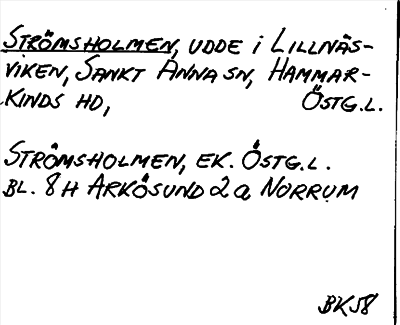 STRÖMSHOLMEN, UDDE i LILLNÄS-
VIKEN, SANKT ANNA SN, HAMMAR-
KINDS HD, ÖSTG.L.
STRÖMSHOLMEN, EK. ÖSTG.L.
BL. 8 H ARKÖSUND 2 a NORRUM
BK58